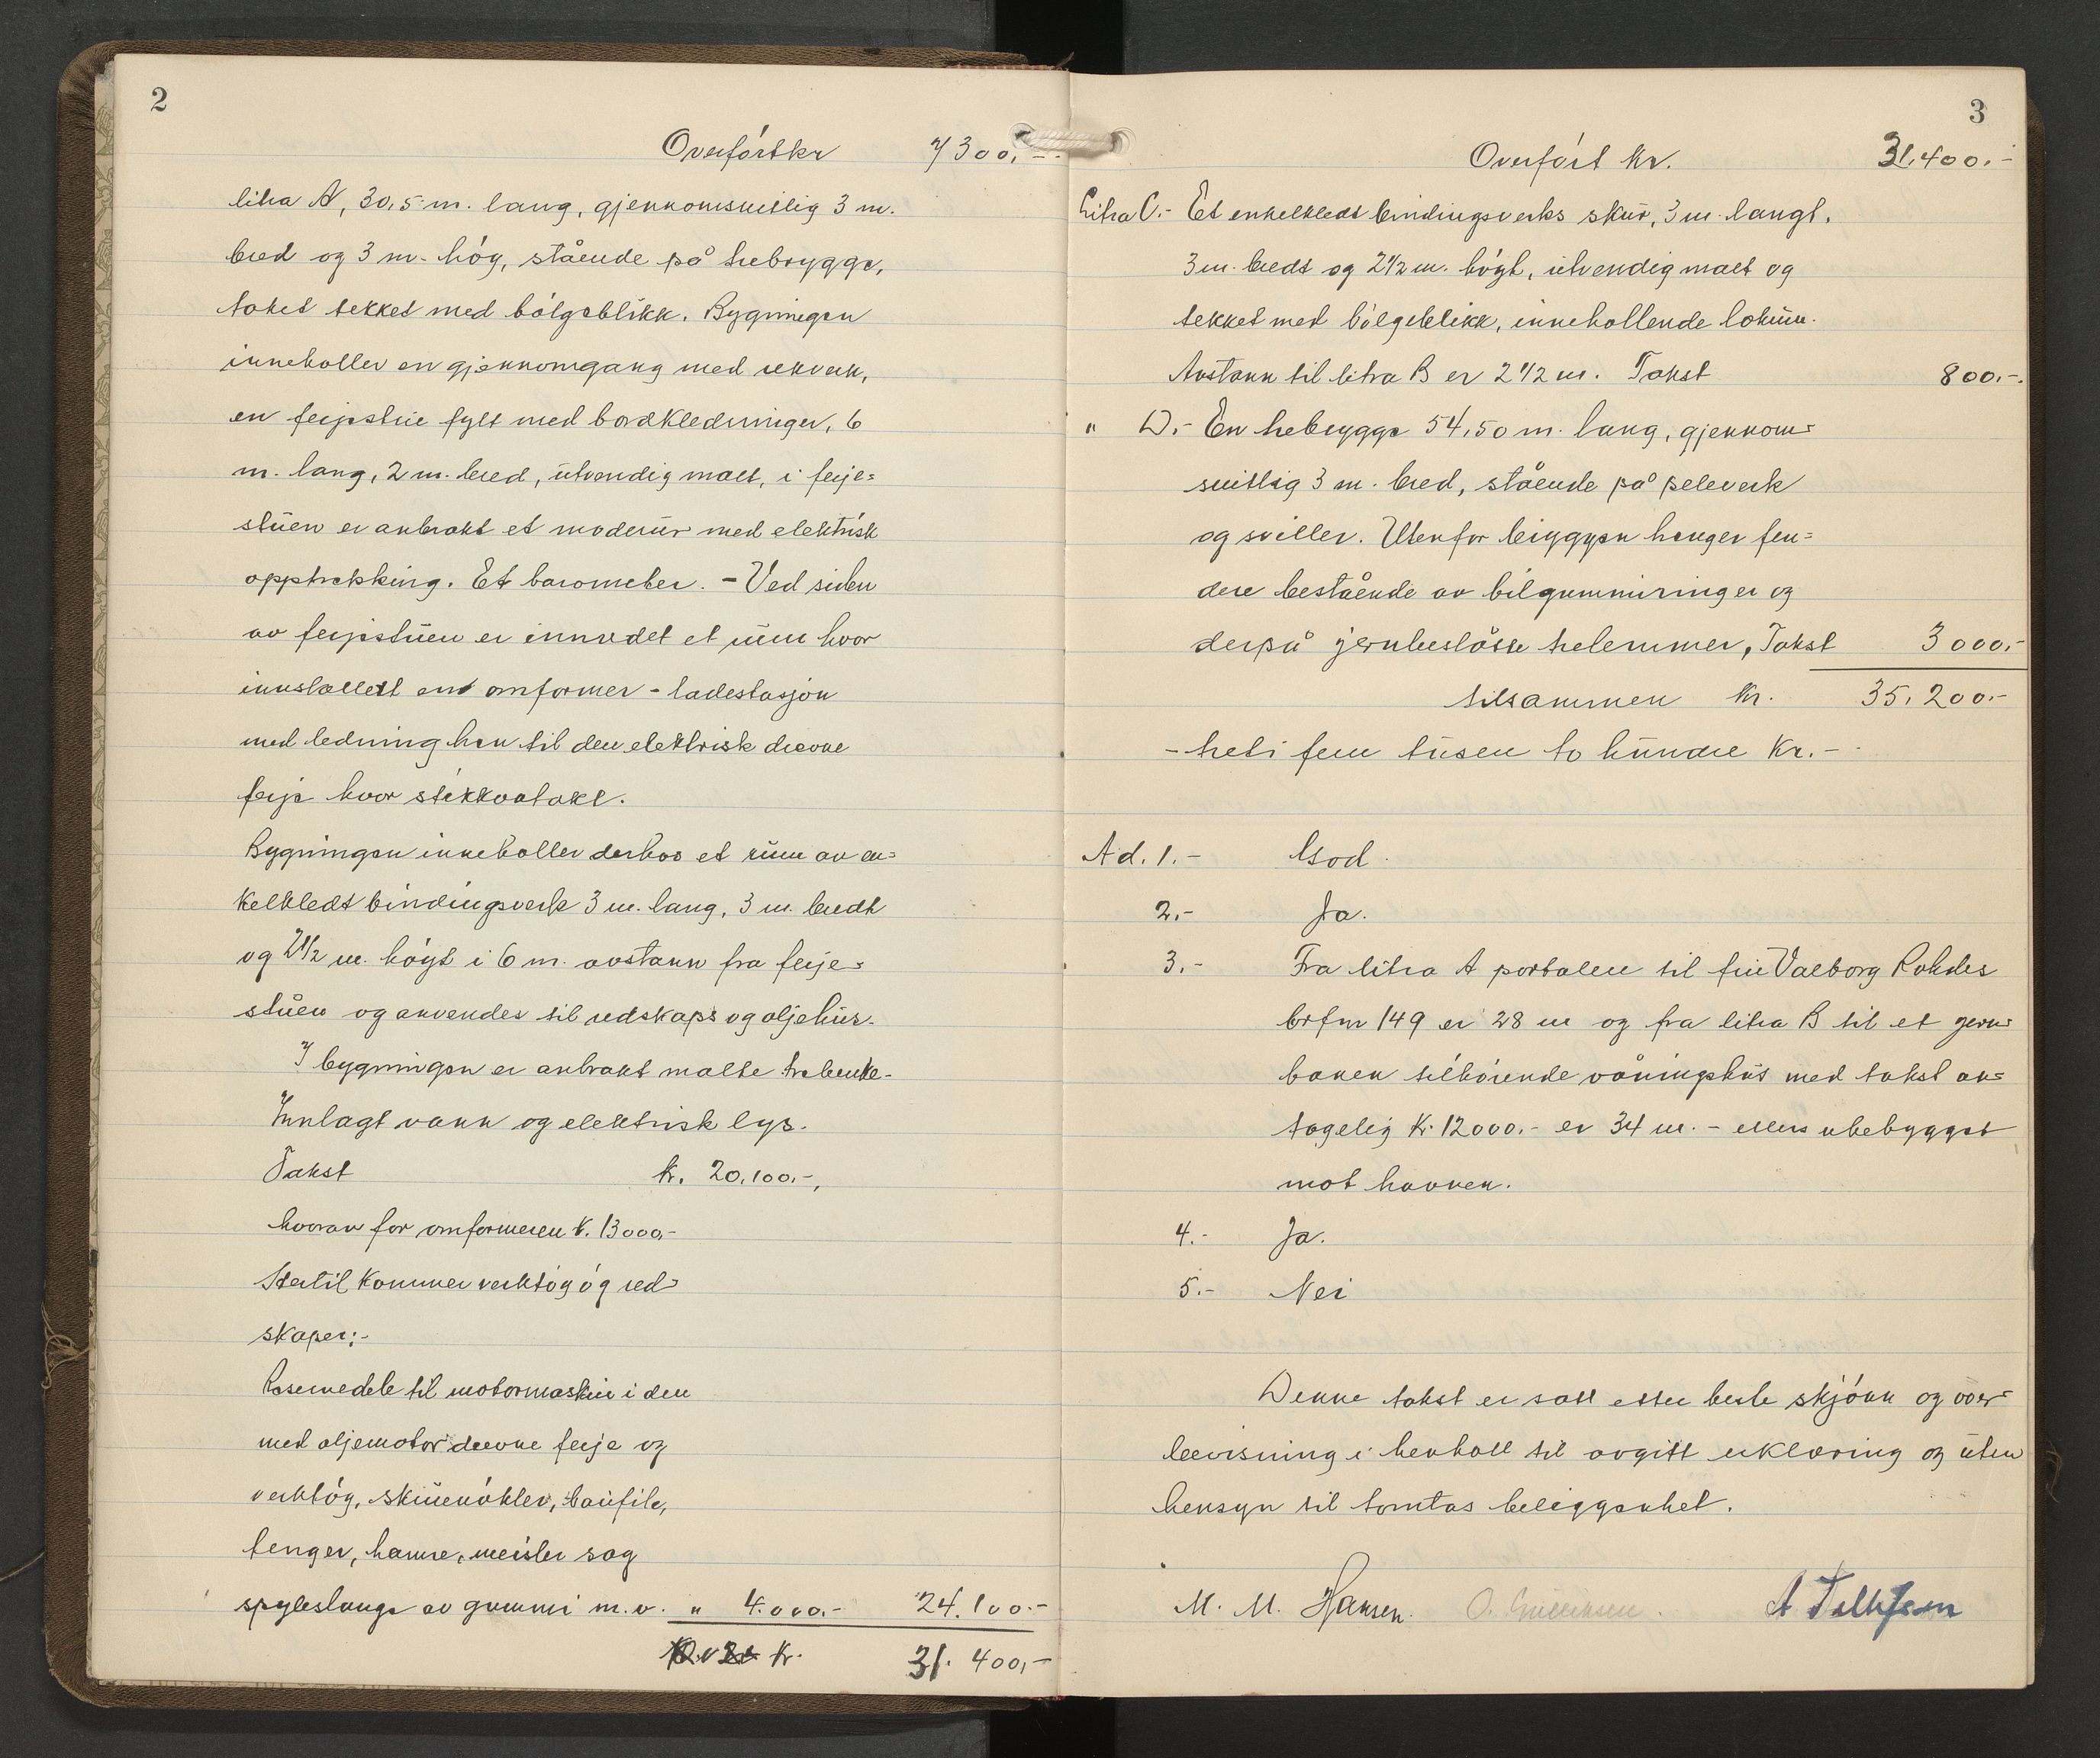 2
Overført kr 7300,-
litra A, 30,5 m. lang, gjennomsnitlig 3 m.
bred og 3 m. høg, stående på trebrygge,
taket tekket med bølgeblikk. Bygningen
inneholler en gjennomgang med rekverk,
en ferjestue fylt med bordkledninger, 6
m. lang, 2 m. bred, utvendig malt, i ferje=
stuen er anbrakt et moderur med elektrisk
opptrekking. Et barometer. - Ved siden
av ferjestuen er innredet et rum hvor
innstallert en omformer - ladestasjon
med ledning hen til den elektrisk drevne
ferje hvor stikkontakt.
Bygningen inneholler derhos et rum av en=
kelkledt bindingsverk 3 m. lang, 3 m. bredt
og 2 1/2 m. høgt i 6 m. avstann fra ferje=
stuen og anvendes til redskaps og oljehus.
I bygningen er anbrakt malte trebenke.
Innlagt vann og elektrisk lys.
Takst kr. 20,100.-,
hvorav for omformeren k. 13000,-
Hertil kommer verktøg óg red=
skaper:-
Reservedele til motormaskin i den
med oljemotor drevne ferje og
verktøg, skruenøkler, baufile,
tenger, hamre, meisler sag
spyleslange av gummi m.v. " 4.000.- 24.100.-
kr. 31.400,-
3
Overført kr. 31.400.-
Litra C.- Et enkelkledt bindingsverks skur, 3 m. langt,
3 m. bredt og 2 1/2 m. høgt, utvendig malt og
tekket med bølgeblikk, innehollende lokum.
Avstann til litra B er 2 1/2 m. Takst 800.-
" D.- En trebrygge 54,50 m. lang, gjennom=
snitlig 3 m. bred, stående på peleverk
og sviller. Utenfor bryggen henger fen=
dere bestående av bilgummiringer og
derpå jernbeslåtte trelemmer, Takst 3000.-
tilsammen kr. 35.200.-
- treti fem tusen to hundre kr.-
Ad. 1.- God.
2.- Ja.
3.- Fra litra A portalen til fru Valborg Rohdes
brfnr 149 er 28 m og fra litra B til et jern=
banen tilhørende våningshus med takst an=
tagelig kr. 12000.- er 34 m. - ellers ubebygget
mot havnen.
4.- Ja.
5.- Nei
Denne takst er satt etter beste skjønn og over=
bevisning i henholl til avgitt erklæring og uten
hensyn til tomtas beliggenhet.
M. M. Hansen. O. Gulliksen. A Tellefsen